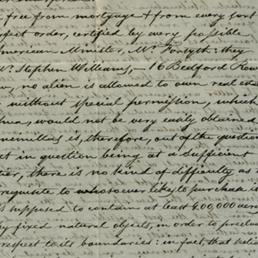 free from mortgage & from every sort
rfect order, certified by every possible
merican Minister, Mr. Forsyth: they
Mr. Stephen Williams, 16 Bedford Row
w, no alien is allowed to own real esta
without special permission, which
would not be very easily obtained
is, therefore, out of the question
ct in question being at a sufficient
tier, there is no kind of difficulty as t
requisite to whosoever likes to purchase i
is supposed to contain at least 400,000 acres
by fixed natural objects, in order to preclude
respect to its boundaries: in fact, that